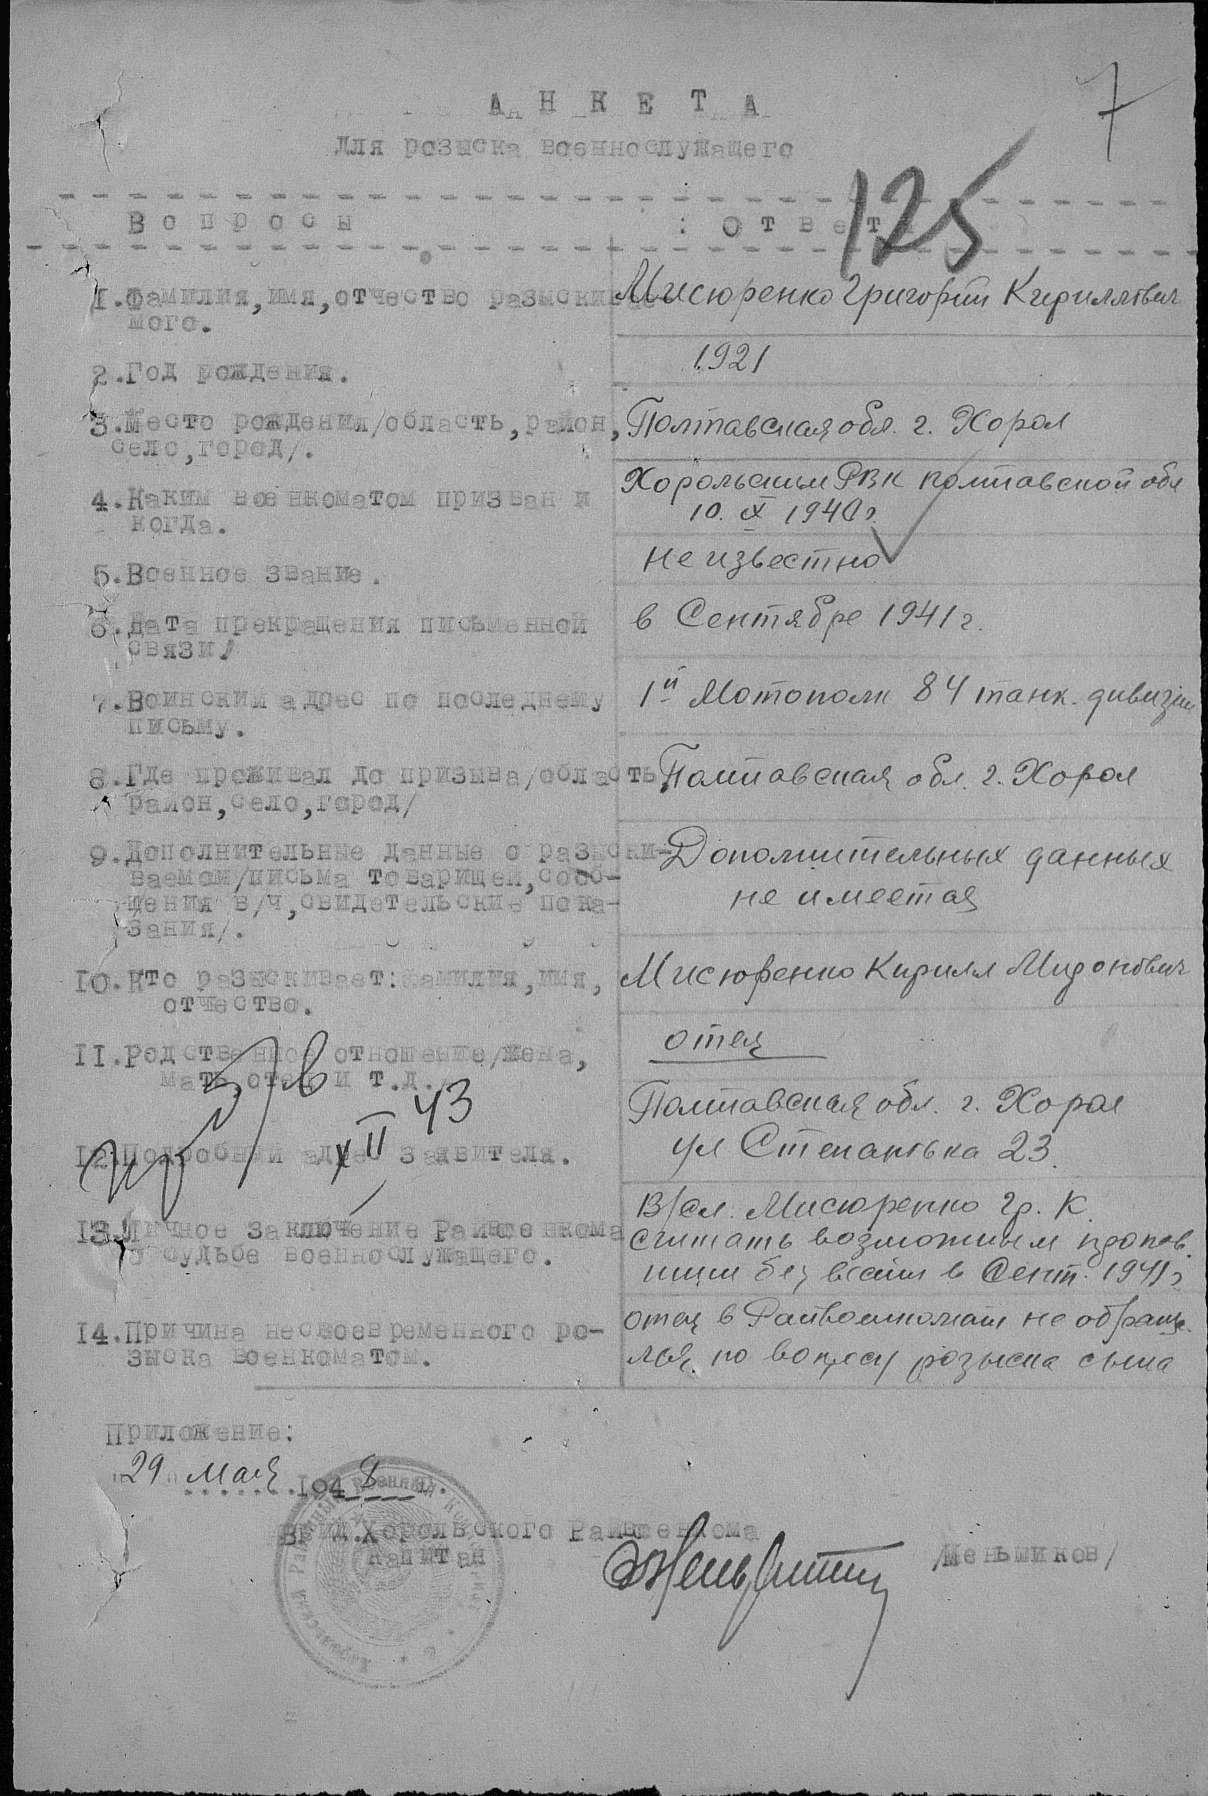 7
А Н К Е Т А
для розыска военнослужащего
125
В о п р о с ы : О т в е т
1. Фамилия, имя, отчество разыскивае-
мого.
Мисюренко Григорий Кириллович
2. Год рождения.
1921
3. Место рождения/область, район,
село, город/.
Полтавская обл. г. Хорол
4. Каким военкоматом призван и
когда.
Хорольским РВК Полтавской обл
10. X 1940 г.
5. Военное звание.
Не известно
6. Дата прекращения письменной
связи.
в Сентябре 1941 г.
7. Воинский адрес по последнему
письму.
1й Мотополк 84 танк. дивизии
8. Где проживал до призыва/область
район, село, город/
Полтавская обл. г. Хорол
9. Дополнительные данные о разыски-
ваемом/письма товарищей, сооб-
щения в/ч, свидетельские пока-
зания/.
Дополнительных данных
не имеется
10. Кто разыскивает: фамилия, имя,
отчество.
Мисюренко Кирилл Миронович
11. Родственное отношение/жена,
мать, отец и т.д.
отец
XII 43
12. Подробный адрес заявителя.
Полтавская обл. г. Хорол
ул Степантька 23.
13. Личное заключение Райвоенкома
о судьбе военнослужащего.
В/сл. Мисюренко Гр. К.
считать возможным пропав
шим без вести в Сент. 1941 г
14. Причина несвоевременного ро-
зыска военкоматом.
отец в Райвоенкомат не обраща
лся по вопросу розыска сына
Приложение:
"29" Мая 1948 г.
ВРИД. Хорольского Райвоенкома
Капитан
/Меньшиков/